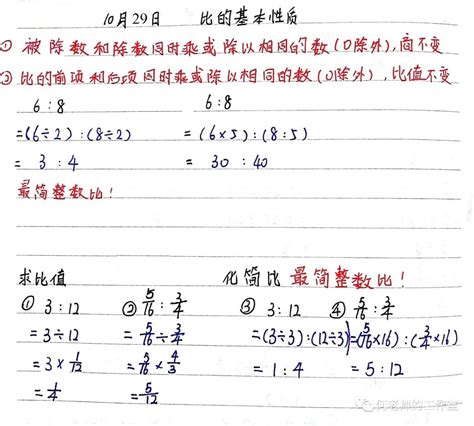 10月29日 比的基本性质
① 被除数和除数同时乘或除以相同的数(0除外),商不变
② 比的前项和后项同时乘或除以相同的数(0除外),比值不变
6:8 6:8
=(6÷2):(8÷2) =(6×5):(8:5)
= 3 : 4 = 30 : 40
最简整数比!
求比值 化简比 最简整数比!
① 3:12 ② 5/16 : 3/4 ③ 3:12 ④ 5/16 : 3/4
=3÷12 =5/16÷3/4 =(3÷3):(12÷3) =(5/16×16):(3/4×16)
=3×1/12 =5/16×4/3 =1:4 =5:12
=1/4 =5/12
何老师的工作室